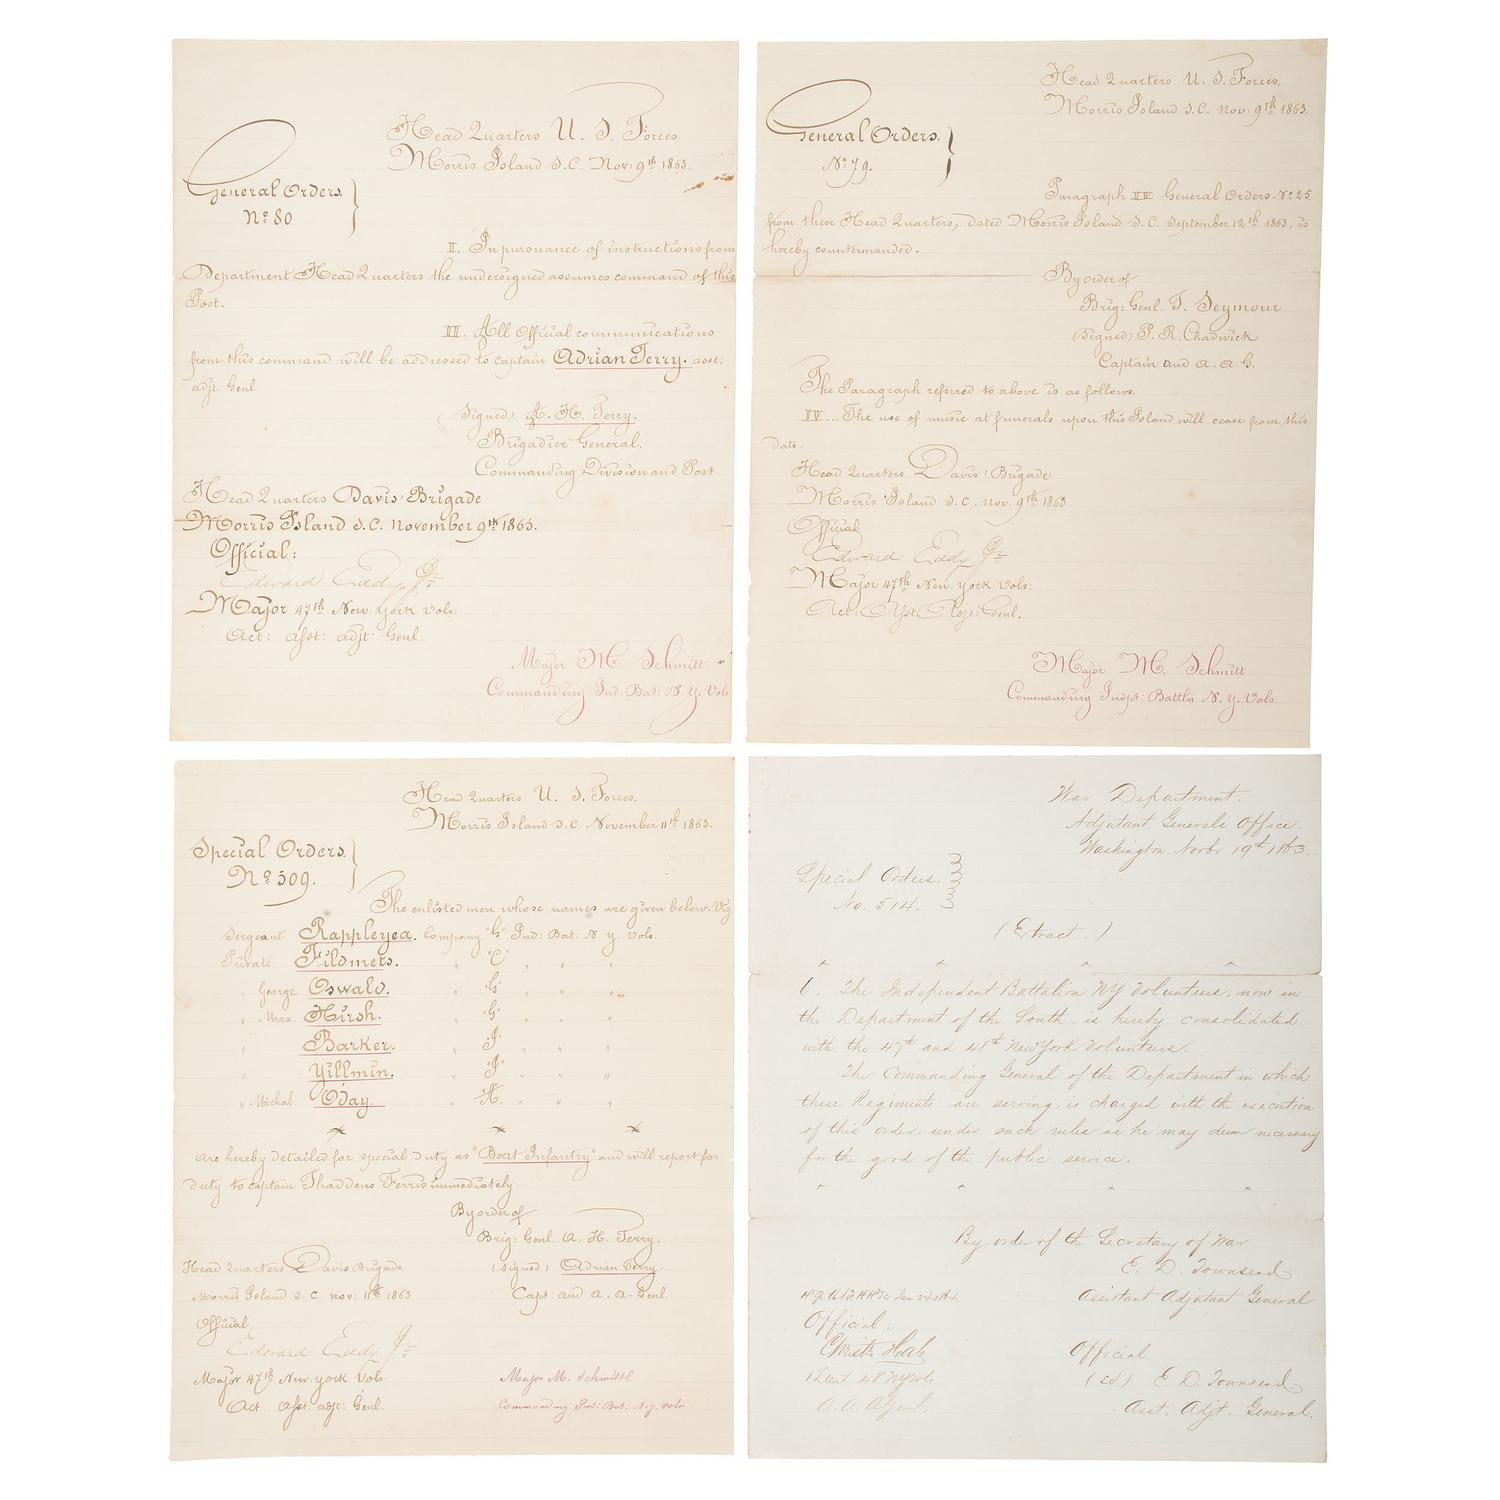 Head Quarters U. S. Forces.
Morris Island S.C. Nov: 9th 1863.
General Orders.
No 80
II. In pursuance of instructions from
Department Head Quarters the undersigned assumes command of this
Post.
III. All Official communications
from this command will be addressed to captain Adrian Terry. asst:
adjt: Genl
(Signed) A. H. Terry.
Brigadier General.
Commanding Division and Post
Head Quarters Davis' Brigade
Morris Island S.C. November 9th 1863.
Official:
Edward Eddy Jr
Major 47th New York Vols:
Act: Asst: adjt: Genl.
Major M. Schmitt
Commanding Ind: Bat: N. Y. Vols
Head Quarters U. S. Forces.
Morris Island S.C. Nov: 9th 1863
General Orders.
No 79.
Paragraph IV General Orders. No 25
from these Head Quarters, dated Morris Island S.C. September 12th 1863, is
hereby countermanded.
By order of
Brig: Genl. T. Seymour
(Signed) P. R. Chadwick
Captain and A. A G.
The Paragraph referred to above is as follows.
IV... The use of music at funerals upon this Island will cease from this
date.
Head Quarters Davis' Brigade
Morris Island S.C. Nov. 9th 1863
Official
Edward Eddy Jr
Major 47th New York Vols:
Act: Asst Adjt: Genl.
Major M. Schmitt
Commanding Indpt: Battln N. Y. Vols.
Head Quarters U. S. Forces.
Morris Island S.C. November 11th 1863.
Special Orders.
No 509.
The enlisted men whose names are given below. Viz
Sergeant Rappleyea. Company "G" Ind: Bat: N. Y. Vols.
Private Fildmets. " "C" " " "
" George Oswald. " "G" " " "
" Max. Hirsh. " "G" " " "
" Barker. " "I" " " "
" Yillmin. " "I" " " "
" Michal Oday. " "A." " " "
are hereby detailed for special duty as "Boat Infantry" and will report for
duty to captain Thaddens Ferris immediately
By order of
Brig: Genl. A. H. Terry.
Head Quarters Davis Brigade (signed) Adrian Terry.
Morris Island S.C. Nov: 11th 1863 Capt: and A. A. Genl.
Official
Edward Eddy Jr
Major 47th New York Vols: Major M. Schmittl
Act. Asst: adjt: Genl. Commanding Ind: Bat: N. Y. Vols
War Department.
Adjutant General's Office.
Washington Novbr 19th 1863.
Special Orders.
No. 514.
(Extract.)
6. The Independent Battalion NY Volunteers, now in
the Department of the South, is hereby consolidated
with the 47th and 48th New York Volunteers.
The Commanding General of the Department in which
these Regiments are serving, is charged with the execution
of this order, under such rules as he may deem necessary
for the good of the public service.
By order of the Secretary of War
E. D. Townsend
Jan 24. 1864. Assistant Adjutant General
Official.
Official
1 Lieut 48 NY Vols (sd) E. D. Townsend
A. A. A Genl. Asst. Adjt. General.